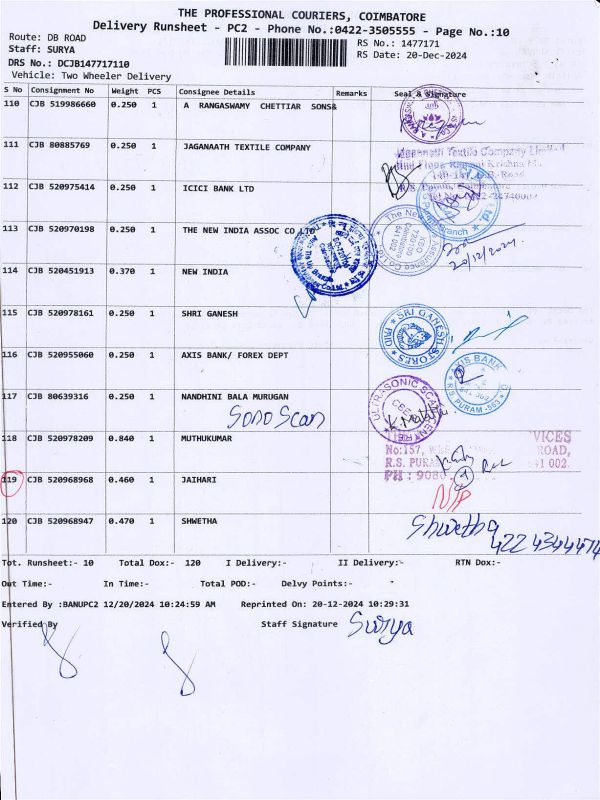 THE PROFESSIONAL COURIERS, COIMBATORE
Delivery Runsheet - PC2 - Phone No.:0422-3505555 - Page No.:10
Route: DB ROAD RS No.: 1477171
Staff: SURYA RS Date: 20-Dec-2024
DRS No.: DCJB147717110
Vehicle: Two Wheeler Delivery
S No Consignment No Weight PCS Consignee Details Remarks Seal & Signature
110 CJB 519986660 0.250 1 A RANGASWAMY CHETTIAR SONS&
111 CJB 80885769 0.250 1 JAGANAATH TEXTILE COMPANY
Jagannath Textile Company Limited
112 CJB 520975414 0.250 1 ICICI BANK LTD
113 CJB 520970198 0.250 1 THE NEW INDIA ASSOC CO LTD
20/12/2024
114 CJB 520451913 0.370 1 NEW INDIA
115 CJB 520978161 0.250 1 SHRI GANESH
SRI GANESH STORES PAID
116 CJB 520955060 0.250 1 AXIS BANK/ FOREX DEPT
AXIS BANK R.S. PURAM -563
117 CJB 80639316 0.250 1 NANDHINI BALA MURUGAN
Sono Scan
ULTRASONIC SCAN
118 CJB 520978209 0.840 1 MUTHUKUMAR
VICES
No:157, ROAD,
R.S. PURAM 41 002.
PH : 908
119 CJB 520968968 0.460 1 JAIHARI
N/P
120 CJB 520968947 0.470 1 SHWETHA
Shwetha
422 4344474
Tot. Runsheet:- 10 Total Dox:- 120 I Delivery:- II Delivery:- RTN Dox:-
Out Time:- In Time:- Total POD:- Delvy Points:-
Entered By :BANUPC2 12/20/2024 10:24:59 AM Reprinted On: 20-12-2024 10:29:31
Verified By Staff Signature Surya